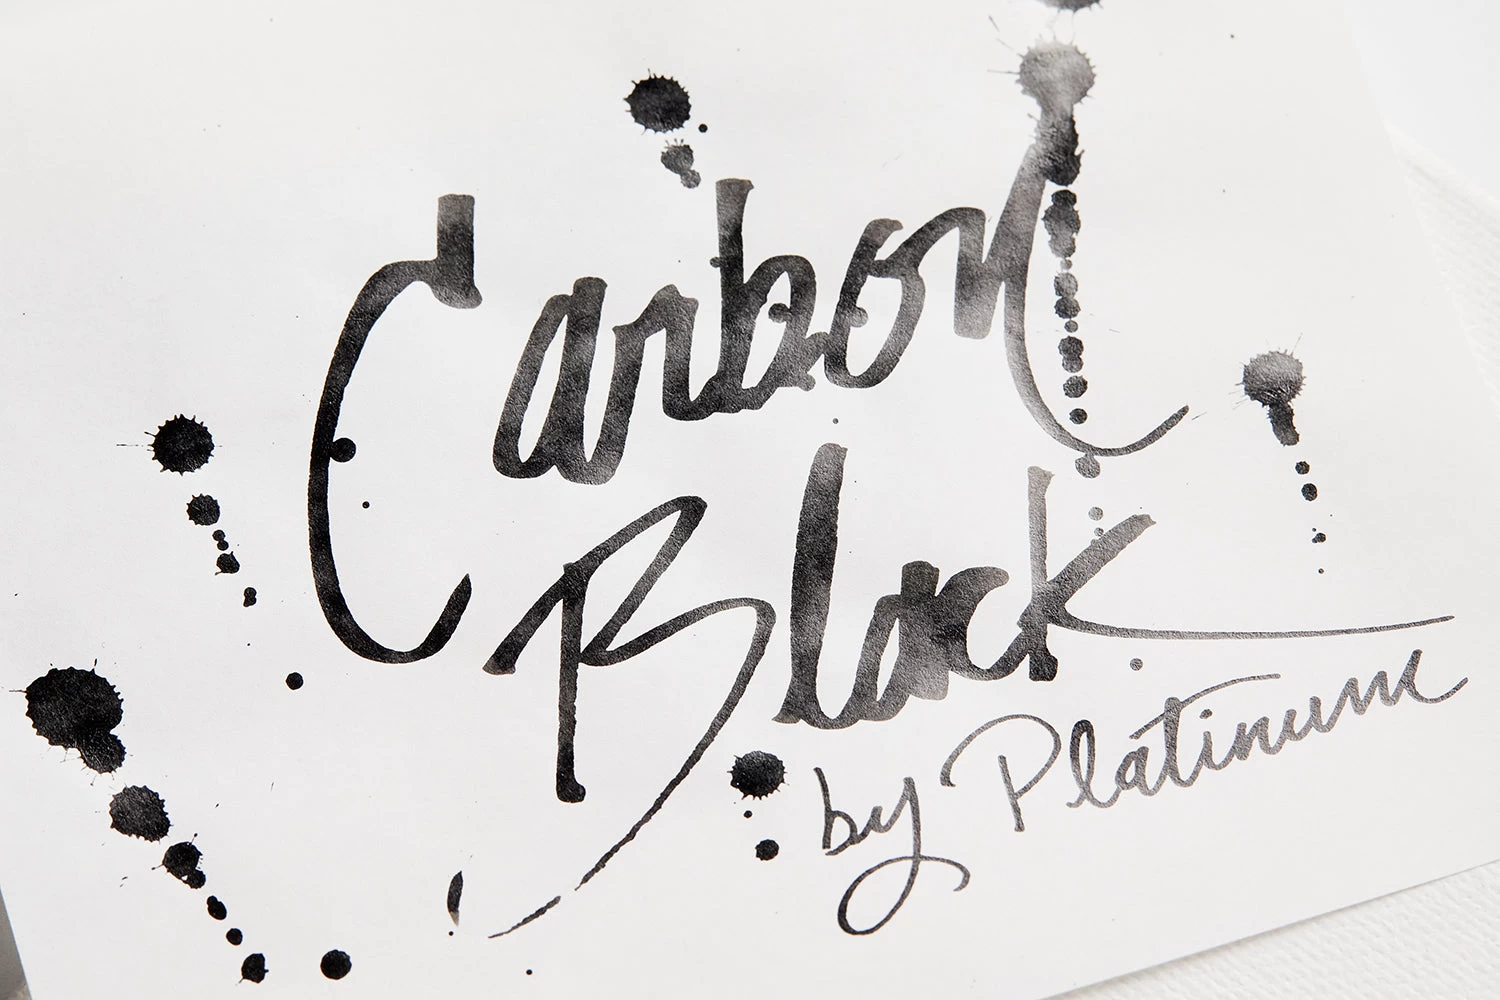 Carbon
Black
by Platinum